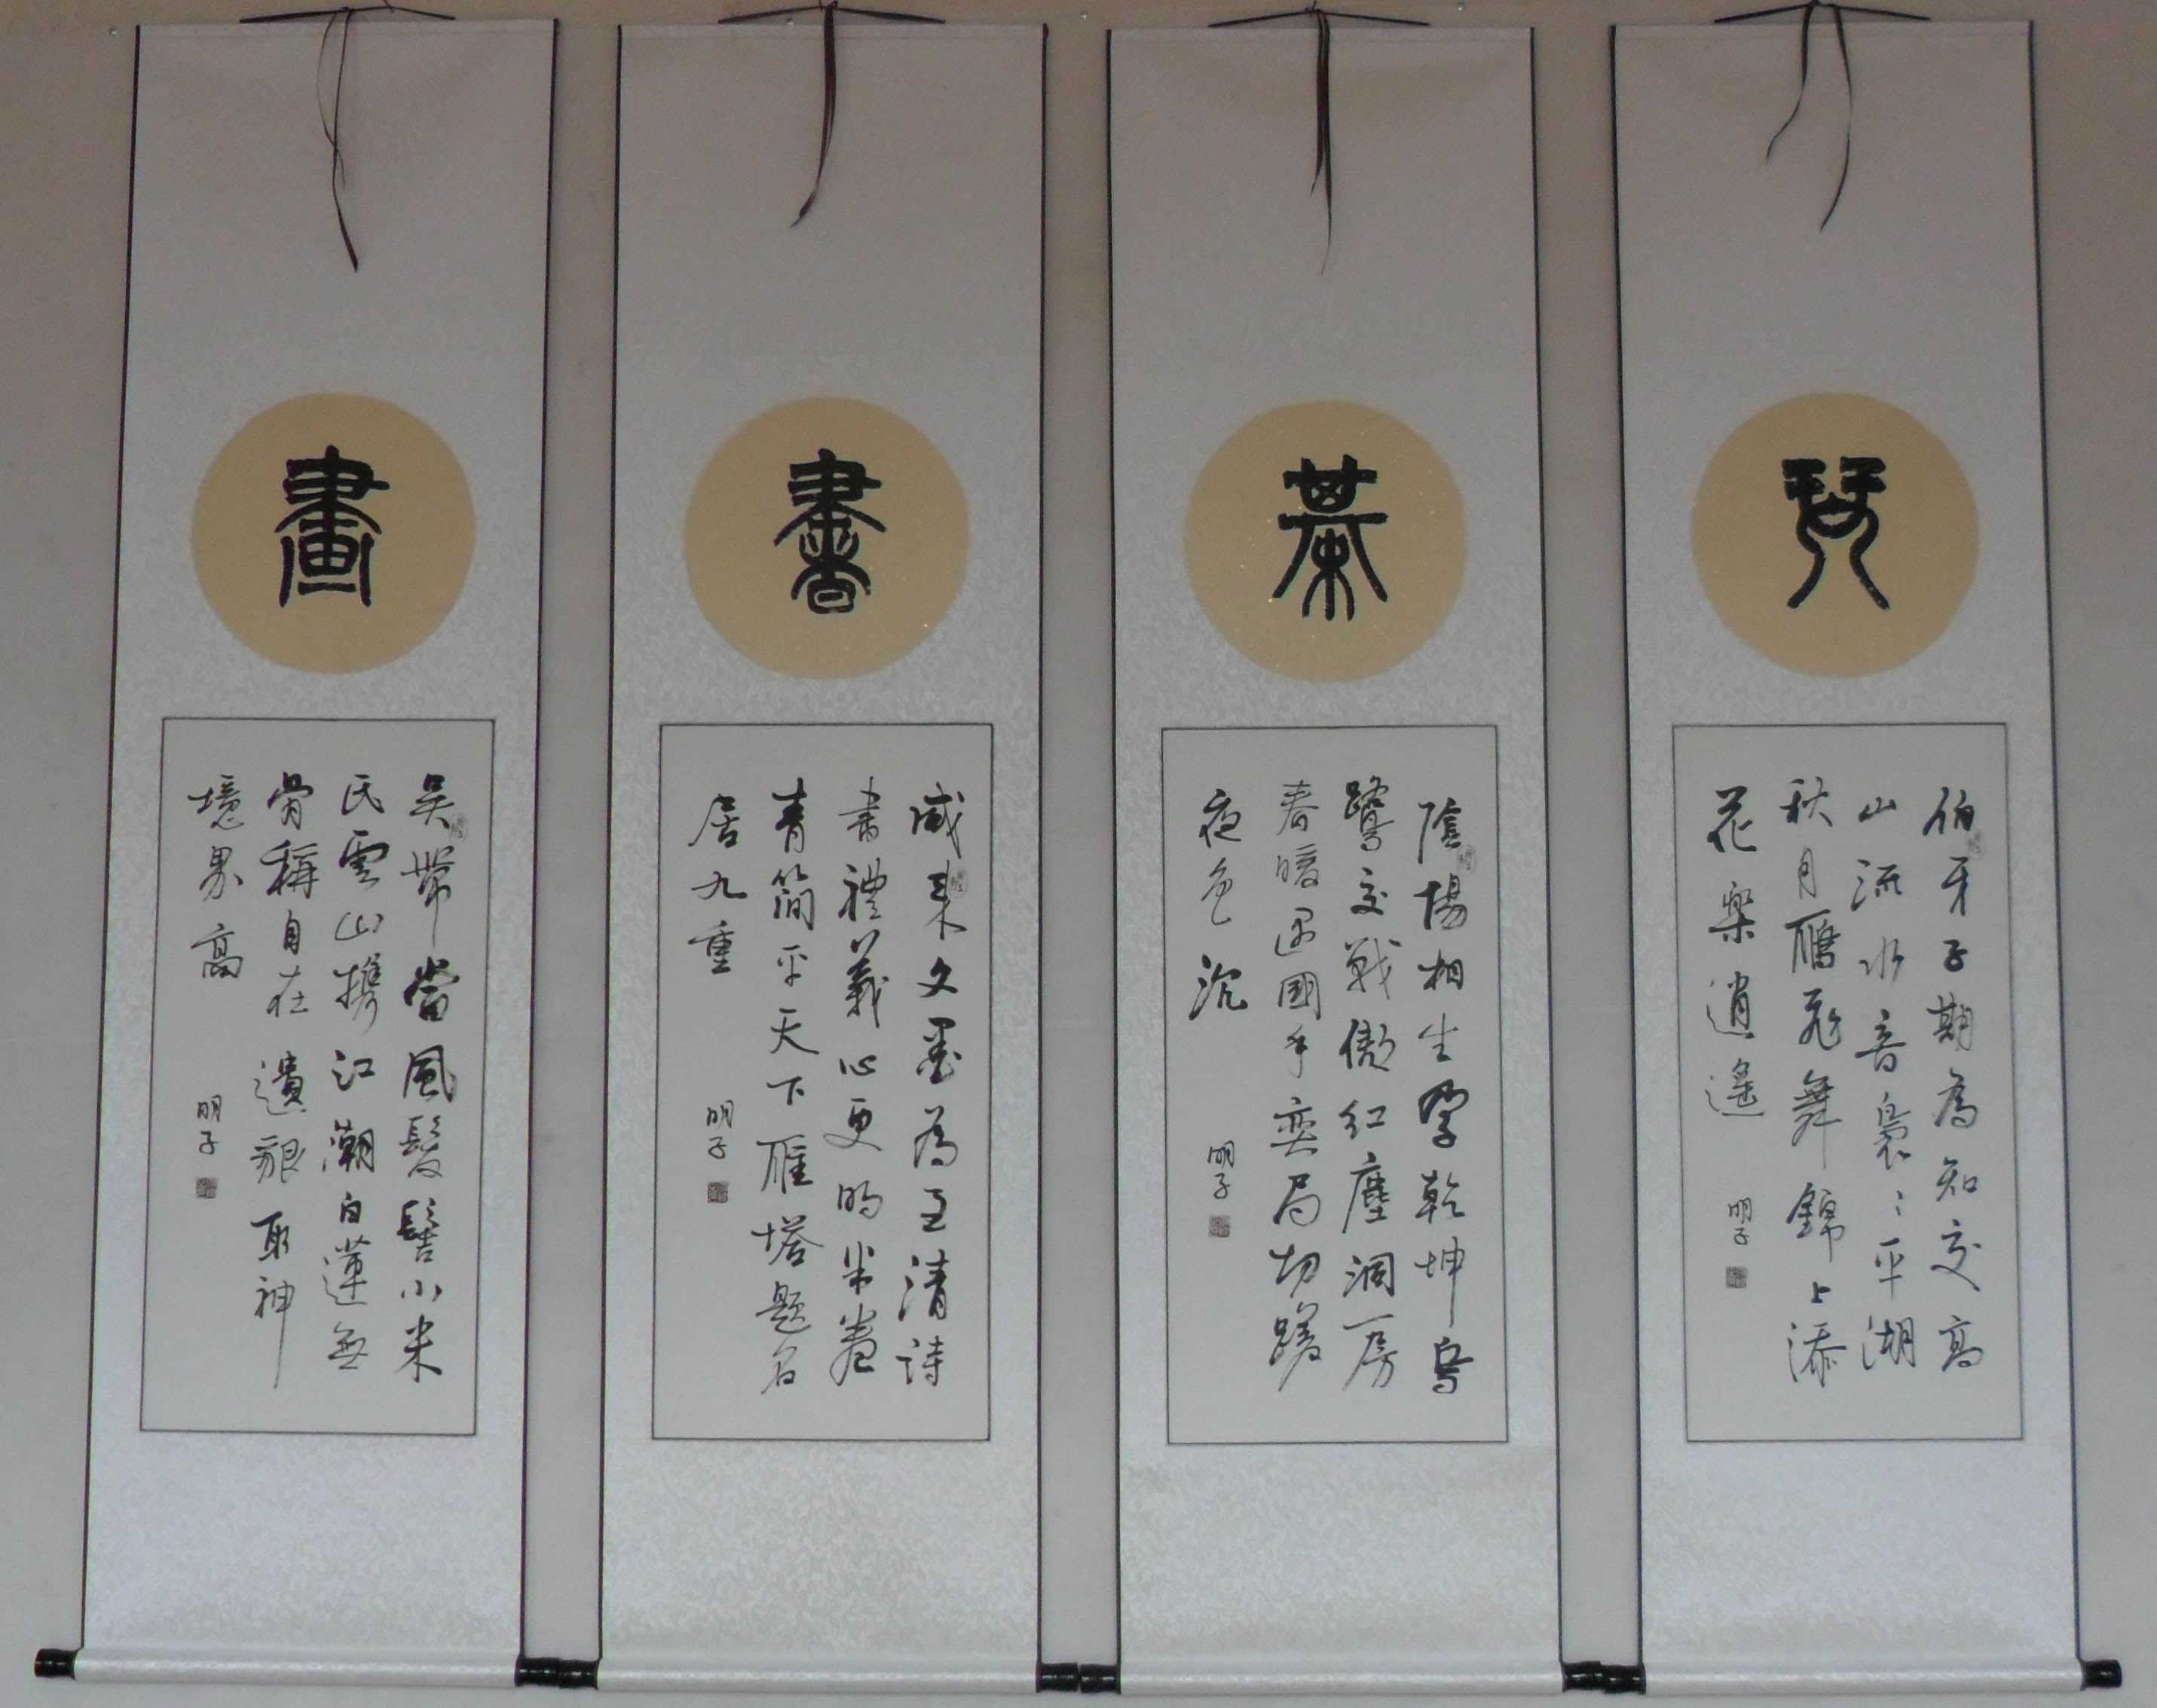 琴
伯牙子期為知交高
山流水音裊〻平湖
秋月雁飛舞錦上添
花樂逍遙
明子
棊
陰陽相生孕乾坤烏
鷺交戰傲紅塵洞房
春暖遇國手奕局切磋
夜色沉
明子
書
咸來文墨為至清詩
書禮義心更明半卷
青簡平天下雁塔題名
居九重
明子
畫
吳帶當風鬢髻小米
氏雲山攜江潮白蓮無
骨稱自在遺貌取神
境界高
明子